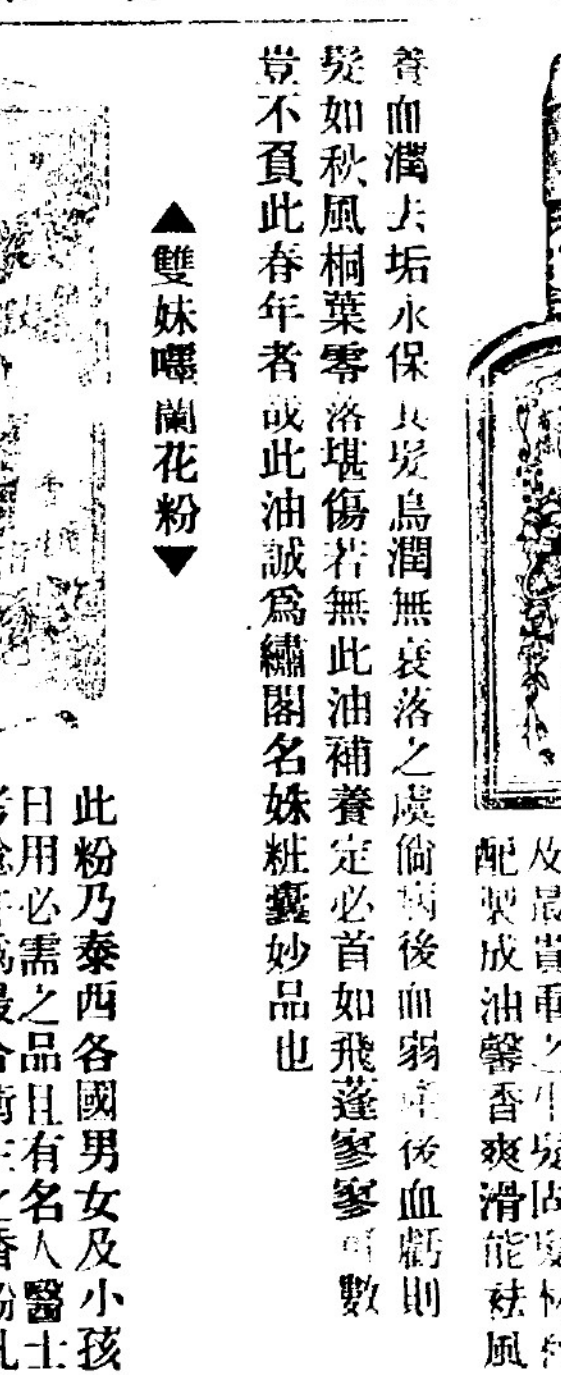 及最貴重之生髮
配製成油馨香爽滑能祛風
養血潤去垢永保長髮烏潤無衰落之虞倘病後血弱產後血虧則
髮如秋風桐葉零落堪傷若無此油補養定必首如飛蓬寥寥可數
豈不負此春年者哉此油誠爲繡閣名姝粧奩妙品也
▲雙妹嚜蘭花粉▼
此粉乃泰西各國男女及小孩
日用必需之品且有名人醫士